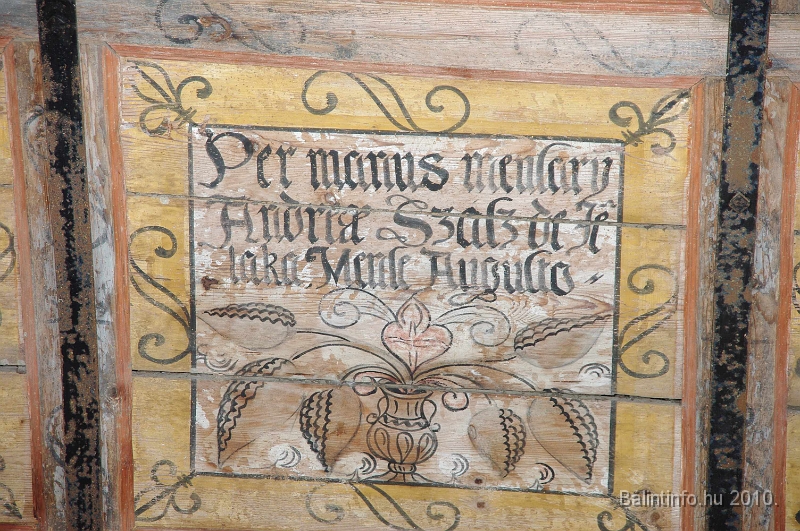 Per manus mensary
Andriæ Szalz de Je
laka. Mense Augusto
Balintinfo.hu 2010.